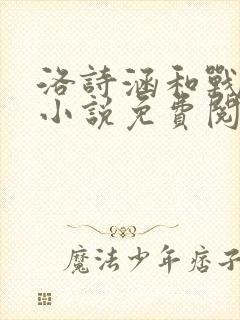 洛詩涵和戰
小說免費閱
魔法少年痞子